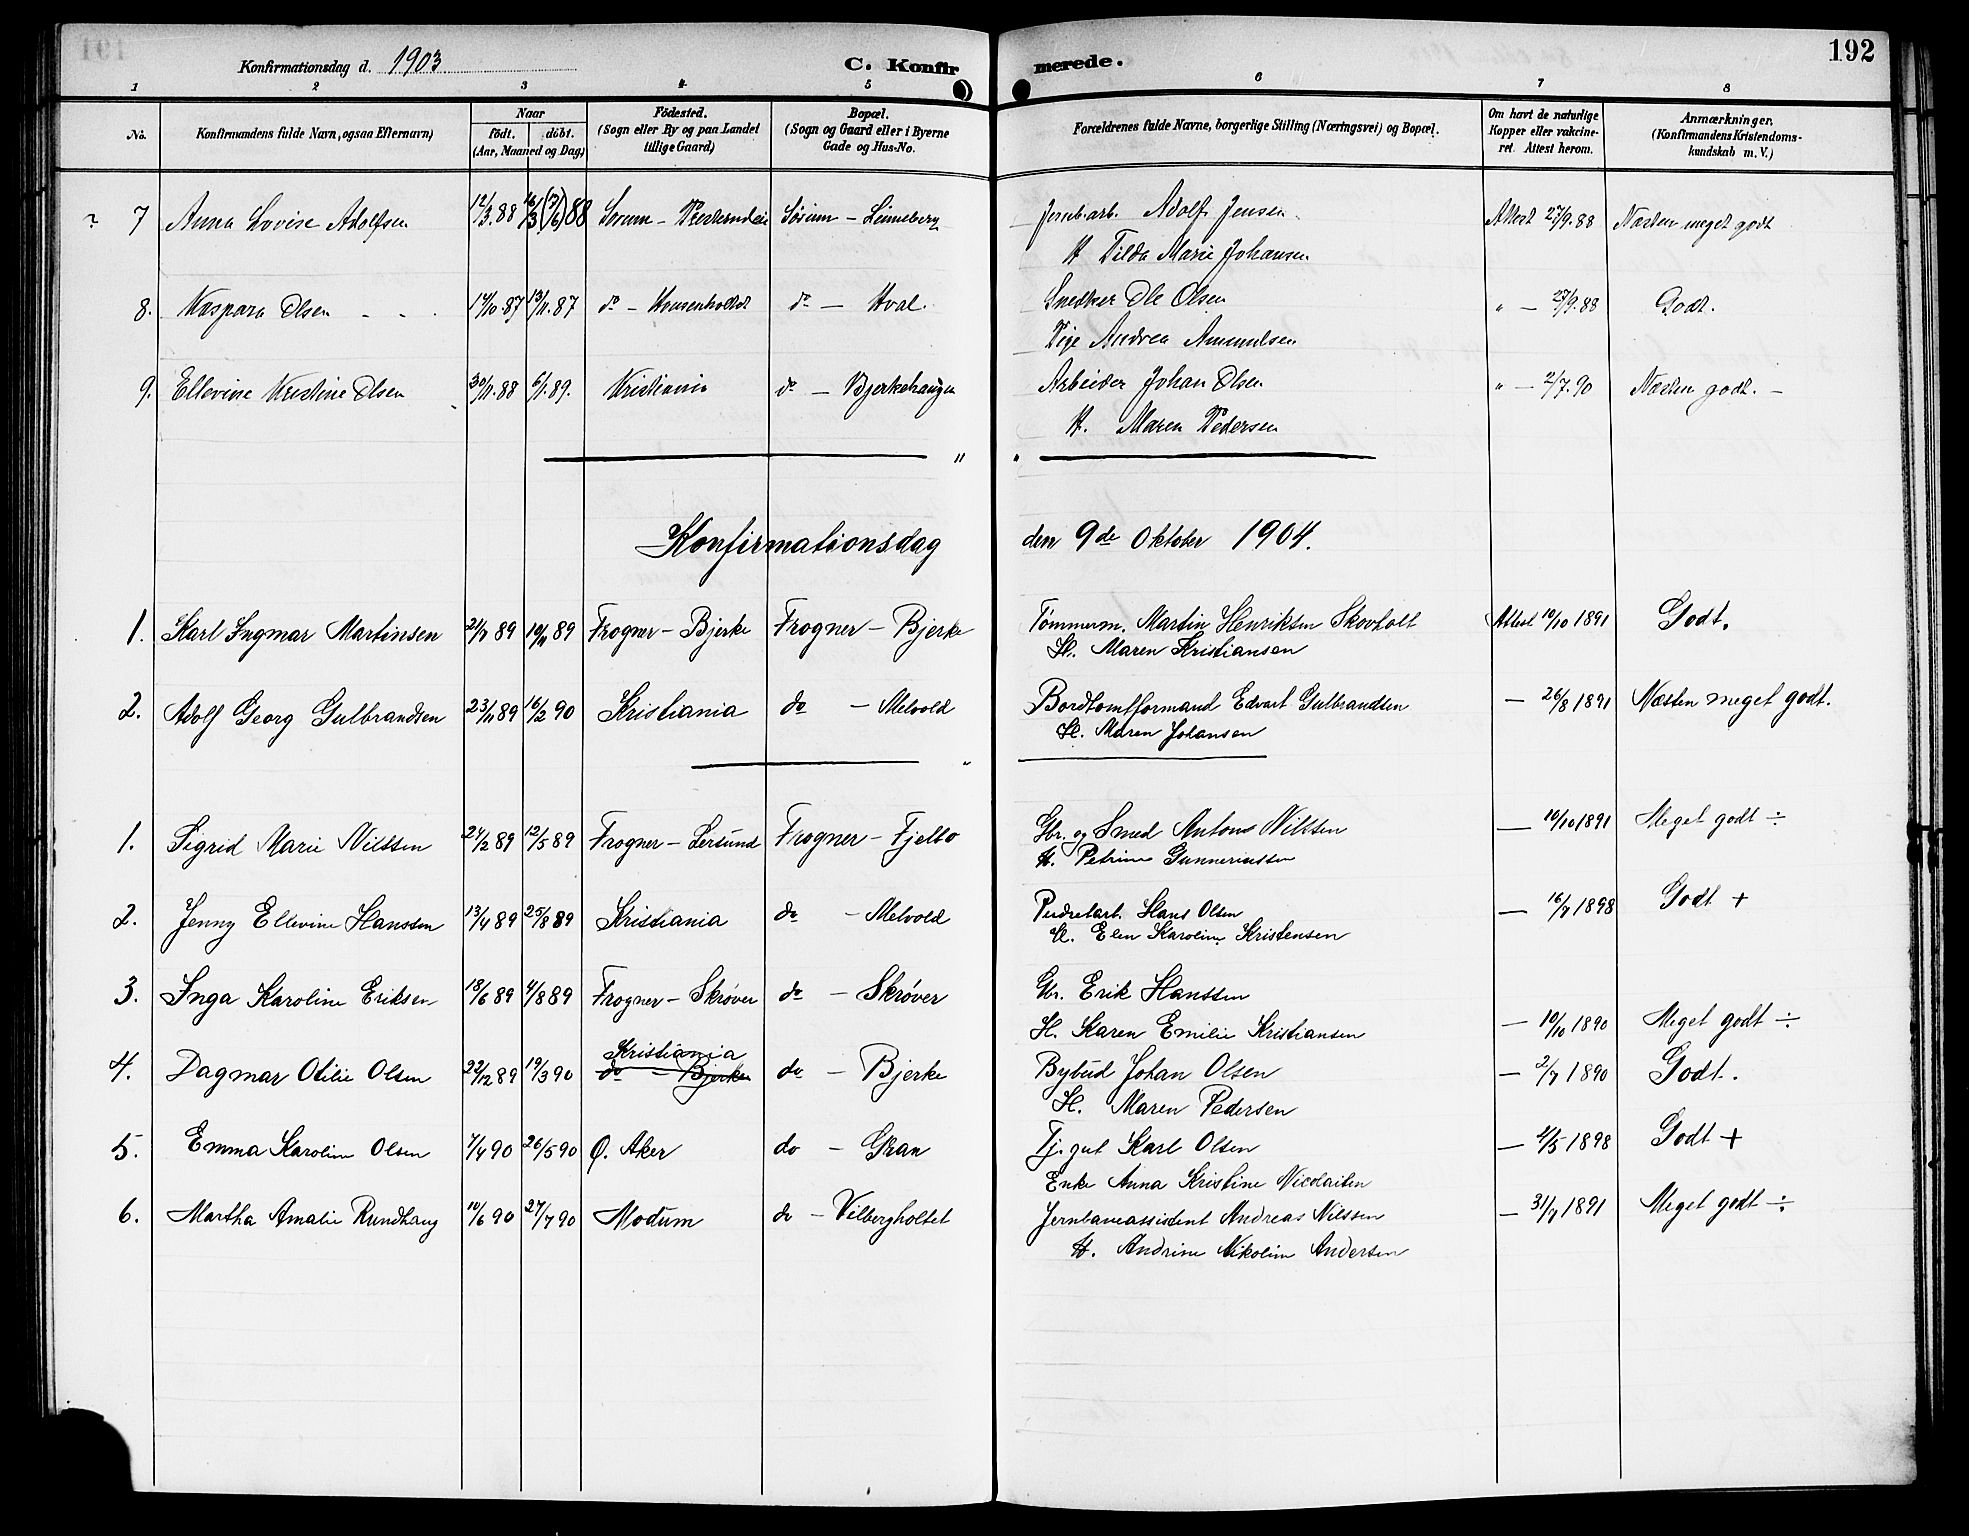 Konfirmationsdag d. 1903 C. Konfirmerede. 192
1 2 3 4 5 6 7 8
No. Konfirmandens fulde Navn, ogsaa Efternavn) Naar født. døbt. (Aar, Maaned og Dag) Fødested. (Sogn eller By og paa Landet tillige Gaard) Bopæl. (Sogn og Gaard eller i Byerne Gade og Hus-No. Forældrenes fulde Navne, borgerlige Stilling (Næringsvei) og Bopæl. Om havt de naturlige Kopper eller vakcineret. Attest herom. Anmærkninger. (Konfirmandens Kristendomskundskab m. V.)
7 Anna Lovise Adolfsen 12/3.88 (7/6) 88 Sørum – Sørum – Linneberg Jernb.arb. Adolf Jensen Attest 27/9.88 Næsten meget godt
H Tilda Marie Johansen
8. Kaspara Olsen 14/10.87 13/11.87 do – do – Hval. Snedker Ole Olsen " – 27/9.88 Godt.
Pige Andrea Amundsen
9. Ellevine Kristine Olsen 30/11.88 6/1.89. Kristiania do – Bjerkehaugen Arbeider Johan Olsen " – 2/7.90 Næsten godt. –
H. Maren Pedersen
Konfirmationsdag den 9de Oktober 1904.
1. Karl Ingmar Martinsen 21/7 89 10/11 89 Frogner – Bjerke Frogner – Bjerke Tømmerm. Martin Henriksen Skovholt Attest 10/10 1891 Godt.
H. Maren Kristiansen
2. Adolf Georg Gulbrandsen 23/11 89 16/2 90 Kristiania do – Melvold Bordtomtformand Edvart Gulbrandsen – 26/8 1891 Næsten meget godt.
H. Maren Johansen
1. Sigrid Marie Nilssen 24/2 89 12/5 89 Frogner – Lersund Frogner – Fjelbo Gbr. og Smed Anton Nilssen – 10/10 1891 Meget godt ÷
H. Petrine Gunneriussen
2. Jenny Ellevine Hanssen 13/4 89 25/8 89 Kristiania do – Melvold Hans Olsen – 16/7 1898 Godt +
H. Elen Karoline Kristensen
3. Inga Karoline Eriksen 18/6 89 4/8 89 Frogner – Skrøver do – Skrøver Gbr. Erik Hanssen
H. Karen Emilie Kristiansen – 10/10 1890 Meget godt ÷
4. Dagmar Otilie Olsen 22/12 89 19/3 90 Kristiania do – Bjerke do – Bjerke Bybud Johan Olsen – 2/7 1890 Godt.
H. Maren Pedersen
5. Emma Karoline Olsen 7/4 90 26/5 90 Ø. Aker do – Gran Tj.gut Karl Olsen – 4/5 1898 Godt +
Enke Anna Kristine Nicolaisen
6. Martha Amalie Rundhaug 10/6 90 27/7 90 Modum do – Vilbergholtet Jernbaneassistent Andreas Nilssen – 31/7 1891 Meget godt ÷
H. Andrine Nikoline Andersen